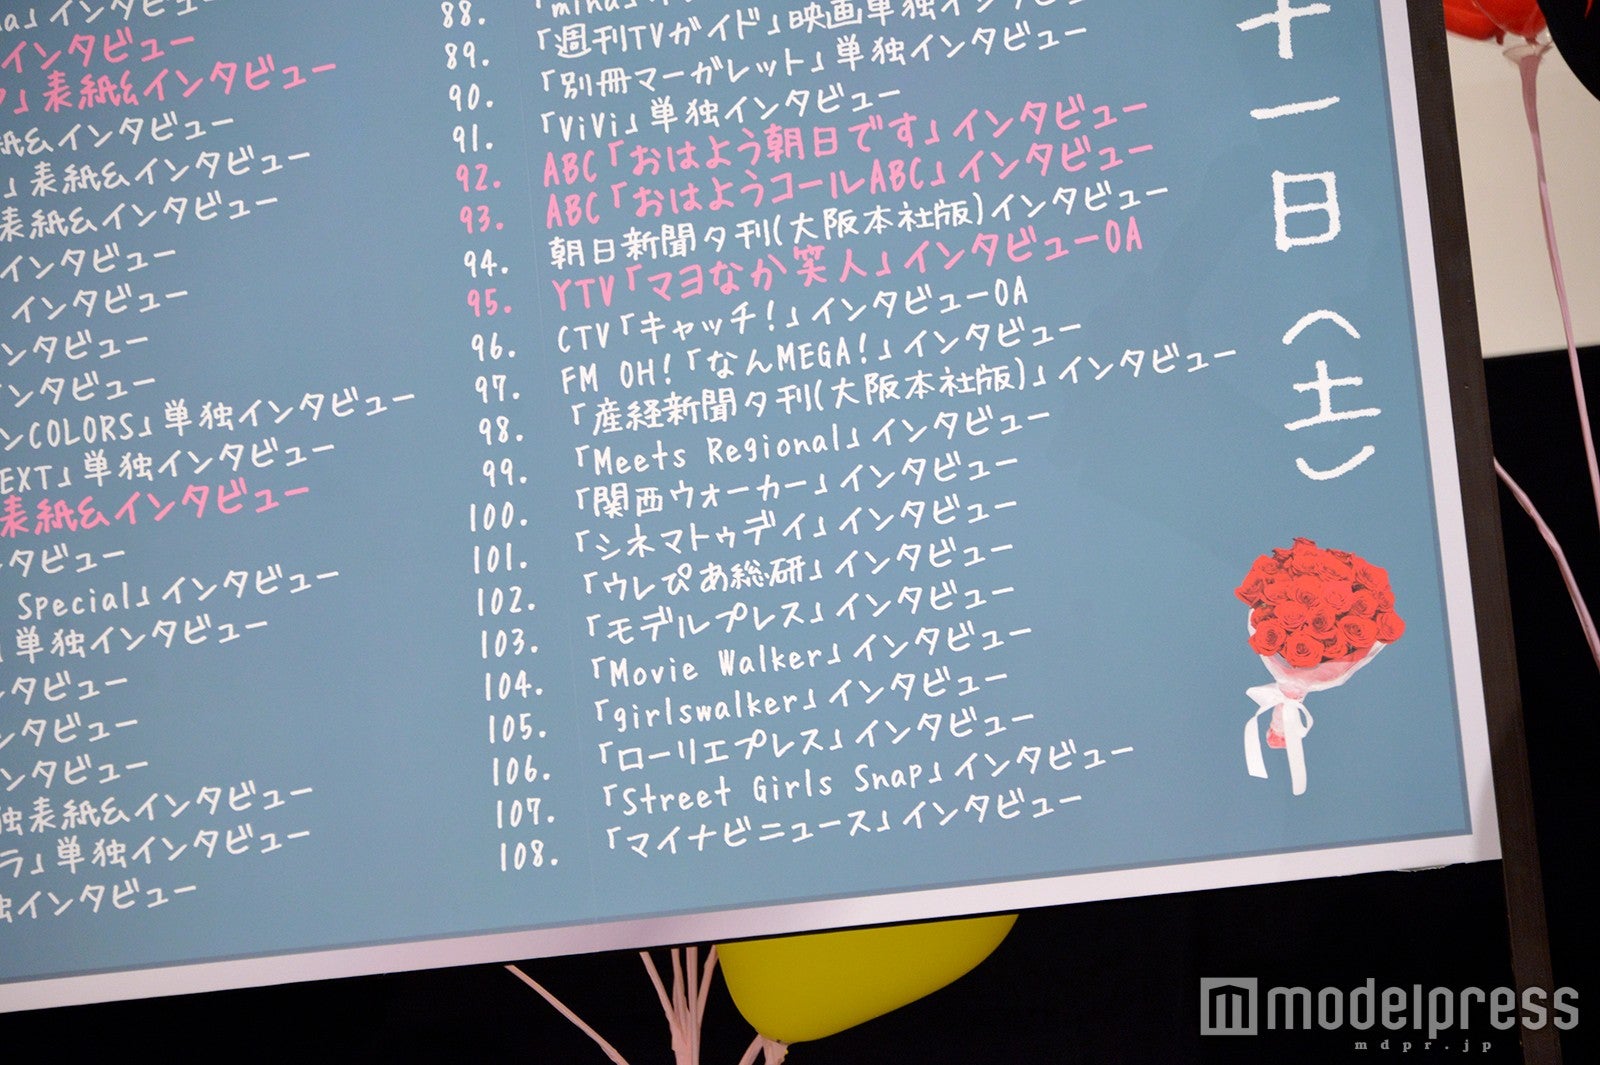 インタビュー
」表紙&インタビュー
紙&インタビュー
」表紙&インタビュー
表紙&インタビュー
インタビュー
インタビュー
ンタビュー
ンタビュー
ンCOLORS」単独インタビュー
EXT」単独インタビュー
表紙&インタビュー
タビュー
Special」インタビュー
単独インタビュー
タビュー
ンタビュー
ンタビュー
独表紙&インタビュー
ラ」単独インタビュー
独インタビュー
88. 「mina」
89. 「週刊TVガイド」映画単独インタビュー
90. 「別冊マーガレット」単独インタビュー
91. 「ViVi」単独インタビュー
92. ABC「おはよう朝日です」インタビュー
93. ABC「おはようコールABC」インタビュー
94. 朝日新聞夕刊(大阪本社版)インタビュー
95. YTV「マヨなか笑人」インタビューOA
96. CTV「キャッチ!」インタビューOA
97. FM OH!「なんMEGA!」インタビュー
98. 「産経新聞夕刊(大阪本社版)」インタビュー
99. 「Meets Regional」インタビュー
100. 「関西ウォーカー」インタビュー
101. 「シネマトゥデイ」インタビュー
102. 「ウレぴあ総研」インタビュー
103. 「モデルプレス」インタビュー
104. 「Movie Walker」インタビュー
105. 「girlswalker」インタビュー
106. 「ローリエプレス」インタビュー
107. 「Street Girls Snap」インタビュー
108. 「マイナビニュース」インタビュー
十一日(土)
modelpress
mdpr.jp